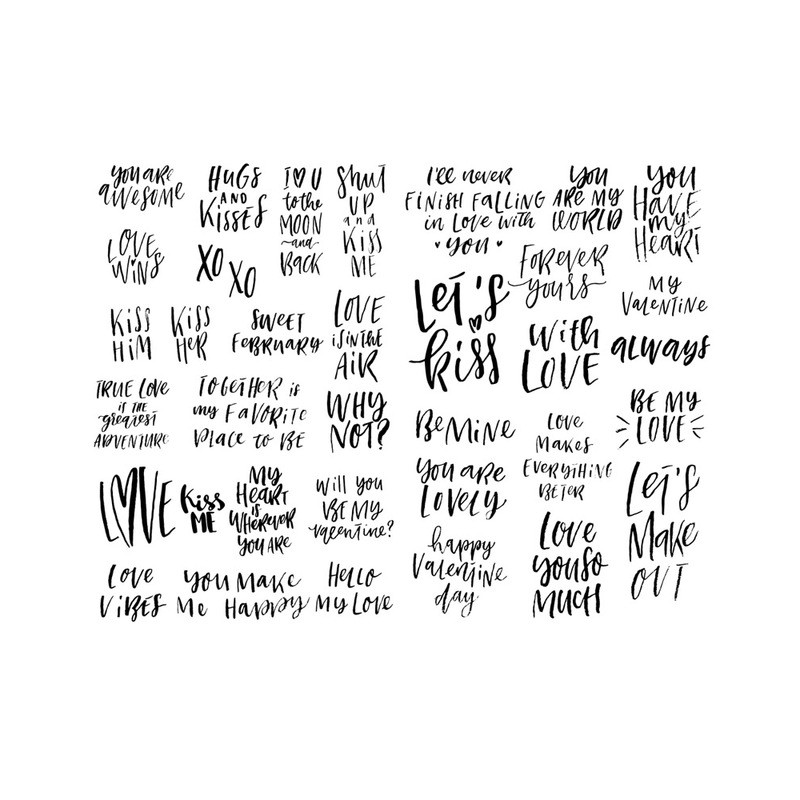 you are
awesome
HUGS
AND
KISSES
I ♡ U
to the
MOON
and
BACK
SHUT
UP
and
KISS
ME
LOVE
WINS
XO
XO
KISS
HIM
KISS
HER
SWEET
FEBRUARY
LOVE
IS IN THE
AIR
TRUE LOVE
IS THE
greatest
ADVENTURE
TOGETHER is
my FAVORITE
PLACE to BE
WHY
NOT?
LOVE
Kiss
ME
MY
HEART
IS
WHEREVER
YOU ARE
will you
BE MY
valentine?
Love
VIBES
YOU MAKE
Me HAPPY
HELLO
MY LOVE
I'll never
FINISH FALLING
in Love with
you
You
ARE MY
WORLD
You
HAVE
my
HEART
FOREVER
yours
MY
VALENTINE
LET'S
kiss
with
LOVE
always
BE MINE
LOVE
MAKES
EVERYTHING
BETER
BE MY
LOVE
YOU ARE
LOVELY
LET'S
MAKE
OUT
happy
Valentine
day
Love
you so
MUCH